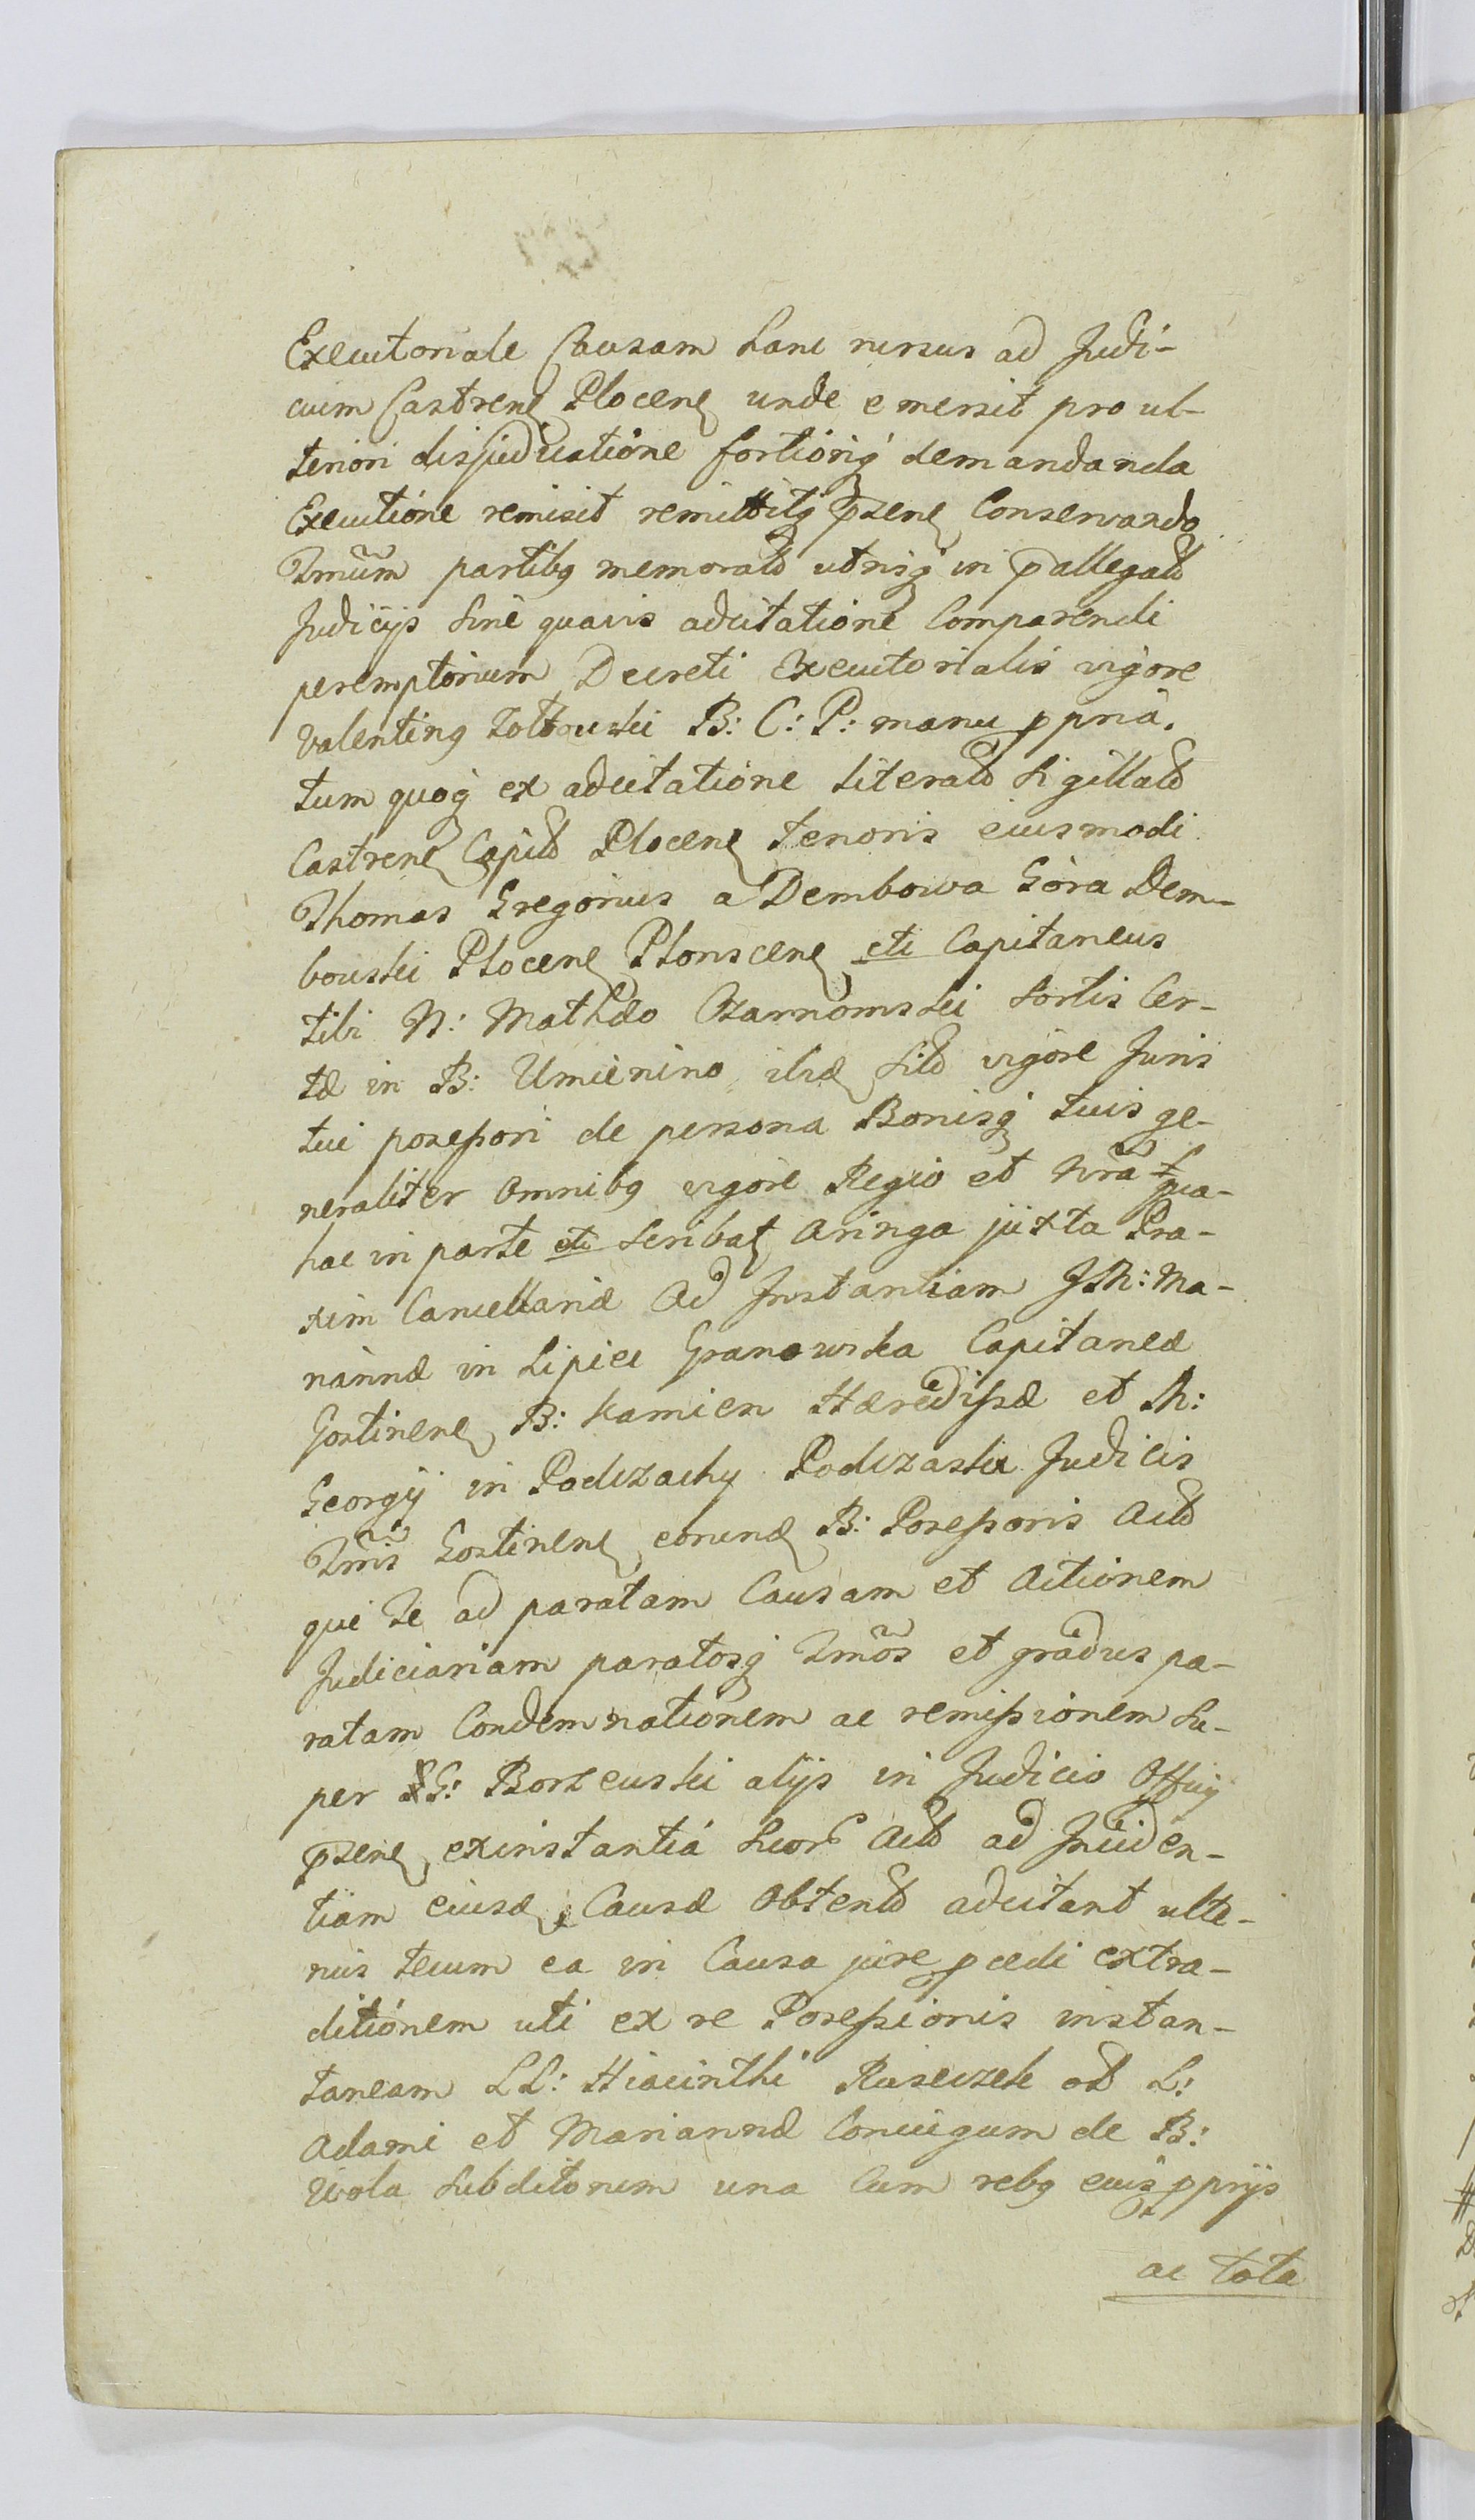 Executoriale Causam hanc rursus ad Judi-
cium Castrenꝭ Plocenꝭ unde emersit pro ul-
teriori disjudicatione fortioriq́ demandanda
Executione remisit remittitq́ p̄senꝭ Conservando
Tmũm partibꝫ memoratꝭ utrisq́ in p̄allegatꝭ
Judicijs sine quavis adcitatione Comparendi
peremptorium Decreti Executorialis vigore
Valentinꝫ Zoltowski B: C: P: manu ppria.
tum quoq́ ex adcitatione literatꝭ Sigillatꝭ
Castrenꝭ Capitꝭ Plocenꝭ tenoris eiusmodi
Thomas Gregorius a Dembowa Góra Dem-
bowski Plocenꝭ Plonscenꝭ etc Capitaneus
tibi N: Mathæo Czarnomski sortis Cer-
tæ in B: Umienino ibidꝭ sitꝭ vigore Juris
tui possessori de persona Bonisq́ tuis ge-
neraliter omnibꝫ vigore Regio et nr̃a qua
hac in parte etc scribatꝭ Aringa juxta Pra-
xim Cancellariæ Ad Instantiam JM: Ma-
riannæ in Lipice Granowska Capitaneæ
Gostinenꝭ B: Kamien Hæredissæ et M:
Georgij in Podczachy Podczaski Judicis
Tr̃ris Gostinenꝭ eorundꝭ B: Possessoris Actꝭ
qui Te ad paratam Causam et Actionem
Judiciariam paratosq́ Tmõs et gradus pa-
ratam Condemnationem ac remissionem su-
per G: Borzewski alijs in Judicio Officij
p̄senꝭ ex instantia suorꝭ Actꝭ ad Inciden-
tiam eiusdꝭ Causæ Obtentꝭ adcitant ulte-
rius tecum ea in Causa jure pcedi extra-
ditionem uti ex re Possessionis instan-
taneam LL: Hiacinthi Ruseczek et L:
Adami et Mariannæ Coniugum de B:
Wola Subditorum una Cum rebꝫ eius pprijs
ac tota